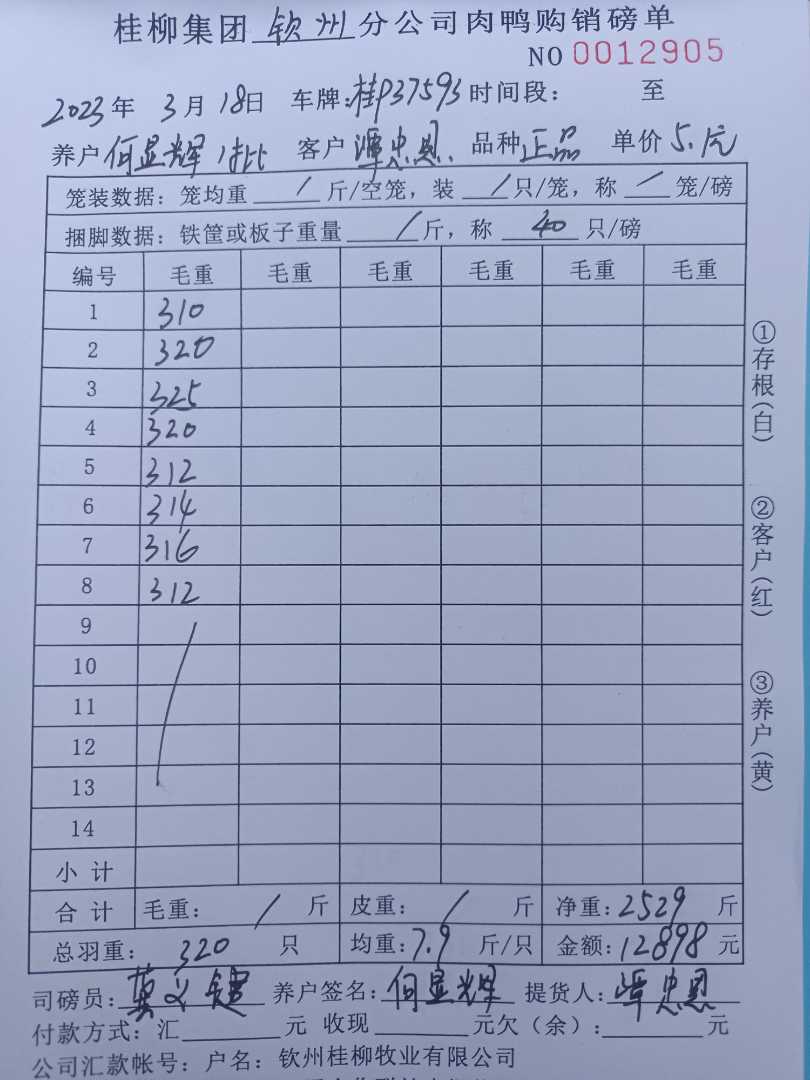 桂柳集团钦州分公司肉鸭购销磅单
NO 0012905
2023年 3月 18日 车牌:桂P37593 时间段: 至
养户 何显辉 1批 客户 谭忠恩. 品种 正品 单价 5.1元
笼装数据: 笼均重 / 斤/空笼, 装 / 只/笼, 称 / 笼/磅
捆脚数据: 铁筐或板子重量 / 斤, 称 40 只/磅
编号 毛重 毛重 毛重 毛重 毛重 毛重
1 310
2 320
3 325
4 320
5 312
6 314
7 316
8 312
9
10
11
12
13
14
小 计
合 计 毛重: / 斤 皮重: / 斤 净重: 2529 斤
总羽重: 320 只 均重: 7.9 斤/只 金额: 12898 元
司磅员: 养户签名: 何显辉 提货人: 谭忠恩
付款方式: 汇 元 收现 元欠(余): 元
公司汇款帐号: 户名: 钦州桂柳牧业有限公司
①存根(白)
②客户(红)
③养户(黄)